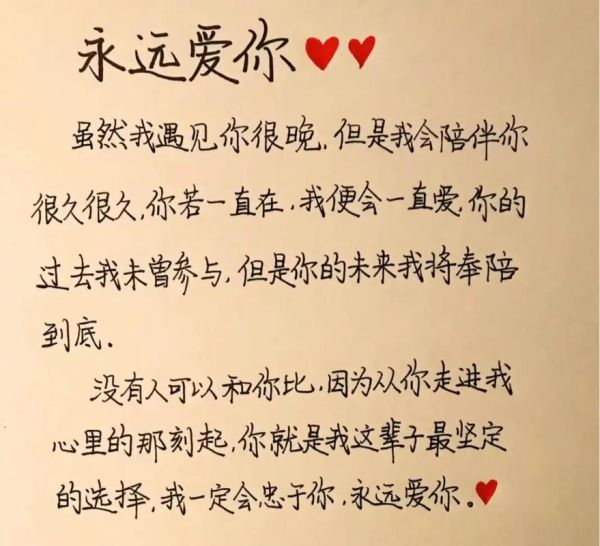 永远爱你♥♥
虽然我遇见你很晚，但是我会陪伴你
很久很久，你若一直在，我便会一直爱，你的
过去我未曾参与，但是你的未来我将奉陪
到底．
没有人可以和你比，因为从你走进我
心里的那刻起，你就是我这辈子最坚定
的选择，我一定会忠于你，永远爱你。♥